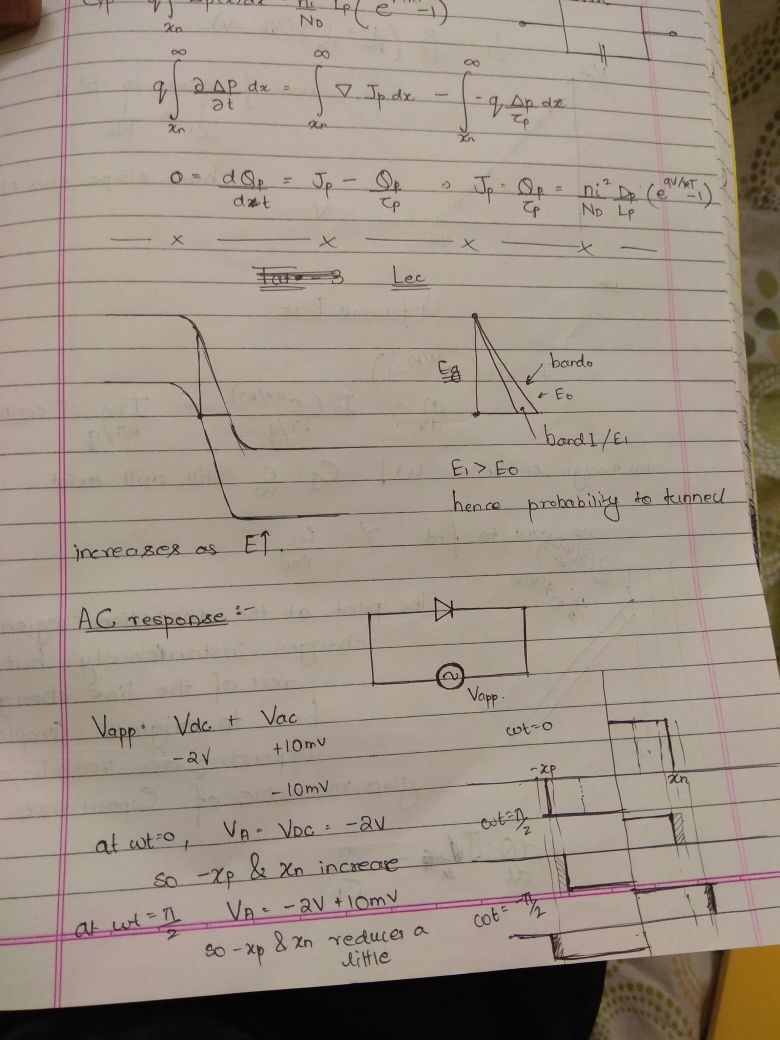 ni
ND Lp (e -1)
xn
q ∫_{xn}^{∞} ∂ΔP/∂t dx = ∫_{xn}^{∞} ∇.Jp dx - ∫_{xn}^{∞} -q Δp/τp dx
0 = dQp/dt = Jp - Qp/τp ⇒ Jp = Qp/τp = ni²/ND Dp/Lp (e^{qV/kT} -1)
— x — x — x — x —
Lec
Eg
band0
E0
band1/E1
E1 > E0
hence probability to tunned
increases as E↑.
AC response :-
Vapp.
Vapp = Vdc + Vac
-2V +10mV
-10mV
ωt=0
-xp
xn
at ωt=0, VA = VDC = -2V
ωt=π/2
so -xp & xn increase
at ωt = π/2 VA = -2V +10mV
ωt= -π/2
so -xp & xn reduces a
little